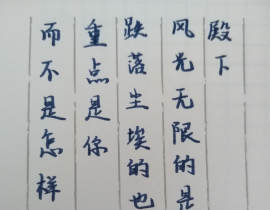 殿下
风光无限的是
跌落尘埃的也
重点是你
而不是怎样